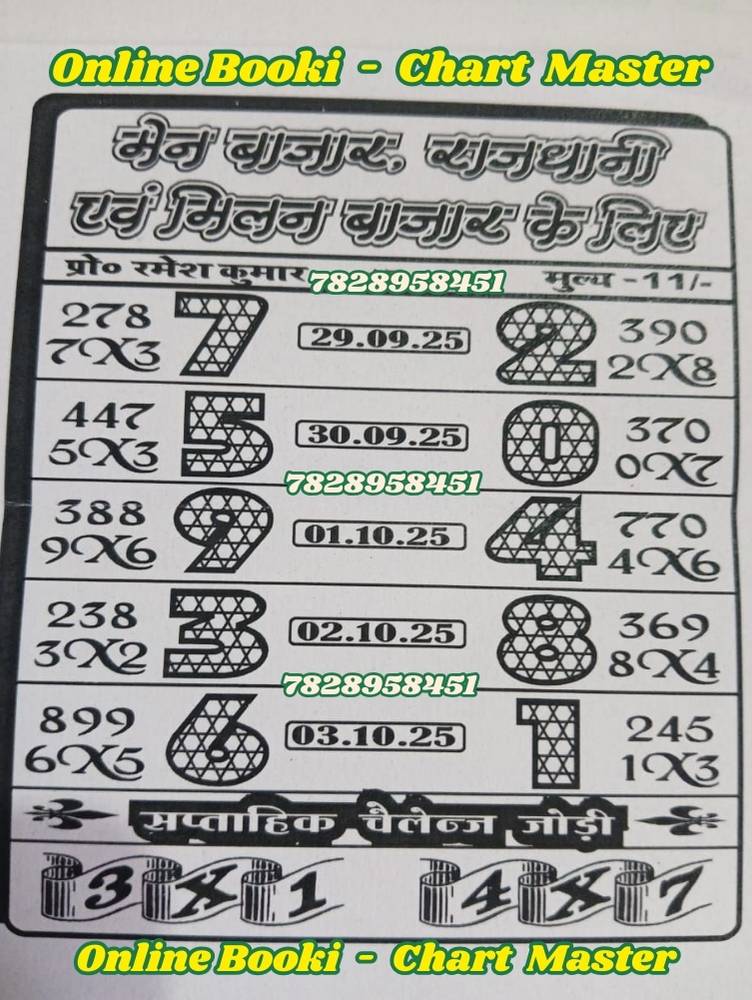 Online Booki - Chart Master
मेन बाजार, राजधानी
एवं मिलन बाजार के लिए
प्रो० रमेश कुमार 7828958451 मुल्य - 11/-
278 7 29.09.25 2 390
7X3 2X8
447 5 30.09.25 0 370
5X3 0X7
7828958451
388 9 01.10.25 4 770
9X6 4X6
238 3 02.10.25 8 369
3X2 8X4
7828958451
899 6 03.10.25 1 245
6X5 1X3
सप्ताहिक चैलेन्ज जोड़ी
3X1 4X7
Online Booki - Chart Master